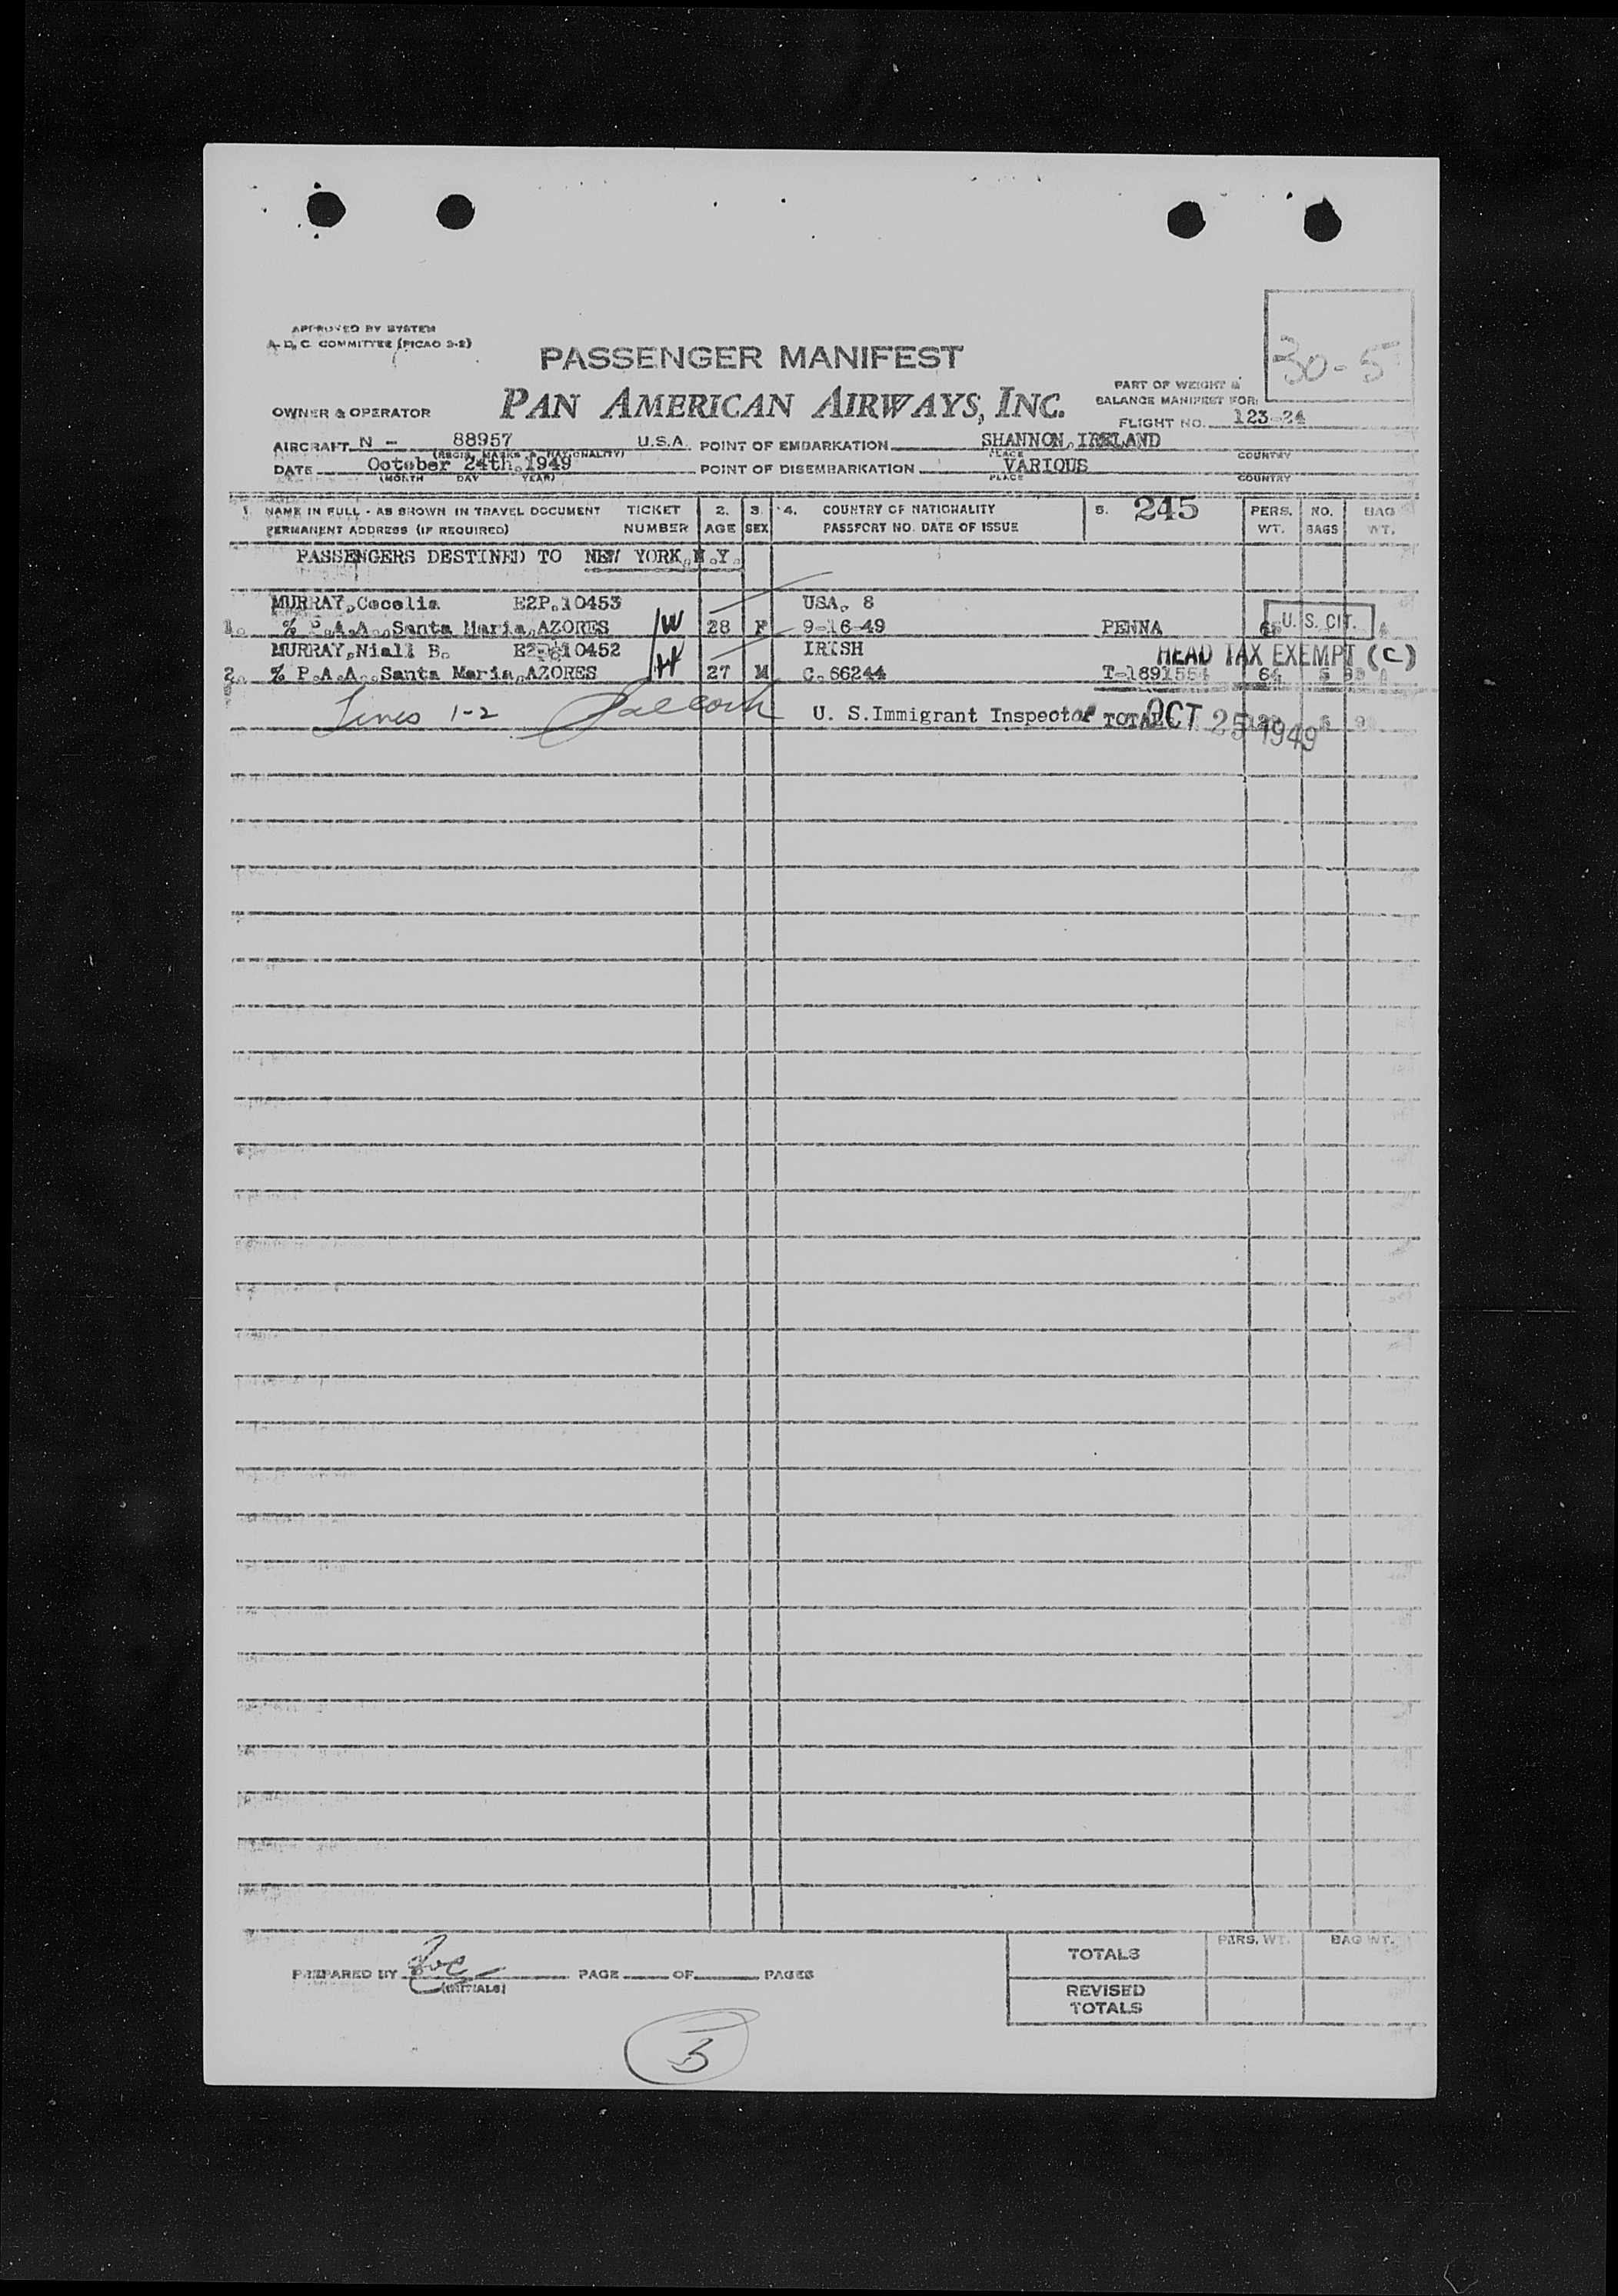 APPROVED BY SYSTEM
A. D. C. COMMITTEE (PICAO 3-2)
30-5
PASSENGER MANIFEST
PART OF WEIGHT &
BALANCE MANIFEST FOR:
OWNER & OPERATOR PAN AMERICAN AIRWAYS, INC.
FLIGHT NO. 123-24
AIRCRAFT N - 88957 U.S.A. POINT OF EMBARKATION SHANNON, IRELAND
(REGIS. MARKS & NATIONALITY) PLACE COUNTRY
DATE October 24th, 1949 POINT OF DISEMBARKATION VARIOUS
(MONTH DAY YEAR) PLACE COUNTRY
1. NAME IN FULL - AS SHOWN IN TRAVEL DOCUMENT TICKET 2. 3. 4. COUNTRY OF NATIONALITY 5. 245 PERS. NO. BAG
PERMANENT ADDRESS (IF REQUIRED) NUMBER AGE SEX PASSPORT NO. DATE OF ISSUE WT. BAGS WT.
PASSENGERS DESTINED TO NEW YORK, N.Y.
MURRAY, Cecelia E2P.10453 USA. 8
1. % P.A.A., Santa Maria, AZORES 28 F 9-16-49 PENNA U. S. CIT.
MURRAY, Niall B. 10452 IRISH HEAD TAX EXEMPT (C)
2. % P.A.A., Santa Maria, AZORES 27 M C. 66244 T-1891554 64
Lines 1-2 U. S. Immigrant Inspector TOTAL OCT 25 1949
PREPARED BY PAGE OF PAGES
(INITIALS)
PERS. WT. BAG WT.
TOTALS
REVISED
TOTALS
3